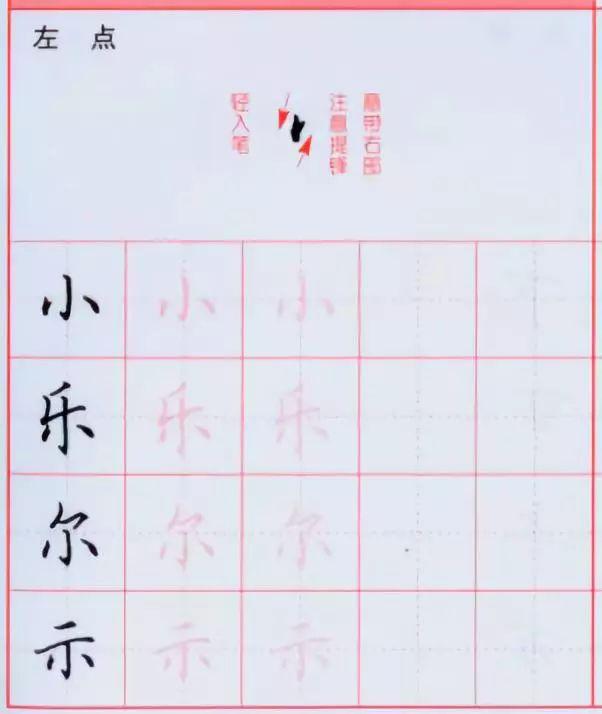 左点
轻入笔
注意提锋
意带右部
小 小 小
乐 乐 乐
尔 尔 尔
示 示 示